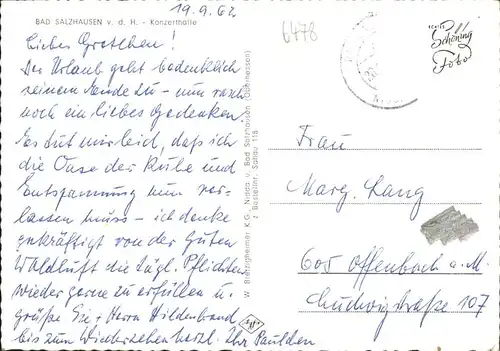 BAD SALZHAUSEN v. d. H. - Konzerthalle
19.9.62
6478
Liebes Gretchen!
Der Urlaub geht bedenklich
seinem Ende zu - nun rasch
noch ein liebes Gedenken!
Es tut mir leid, daß ich
die Oase der Ruhe und
Entspannung nun ver-
lassen muss - ich denke
gekräftigt von der guten
Waldluft die tägl. Pflichten
wieder gerne zu erfüllen u.
grüße Sie + Herrn Hildenbrand
bis zum Wiedersehen herzl. Ihr
W. Bensigheimer K.G., Nidda u. Bad Salzhausen (Oberhessen)
z Bestellnr. Sahau 116
echtes
Schöning
Foto
Frau
Marg. Lang
605 Offenbach a.M.
Ludwigstraße 107